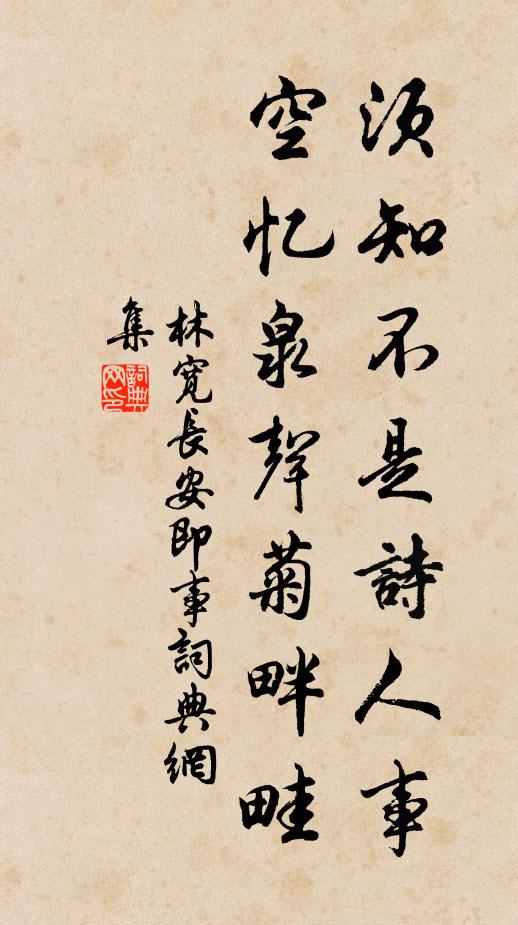 须知不是詩人事
空忆泉聲菊畔畦
林寬長安即事詞典網
集
詞典
网印